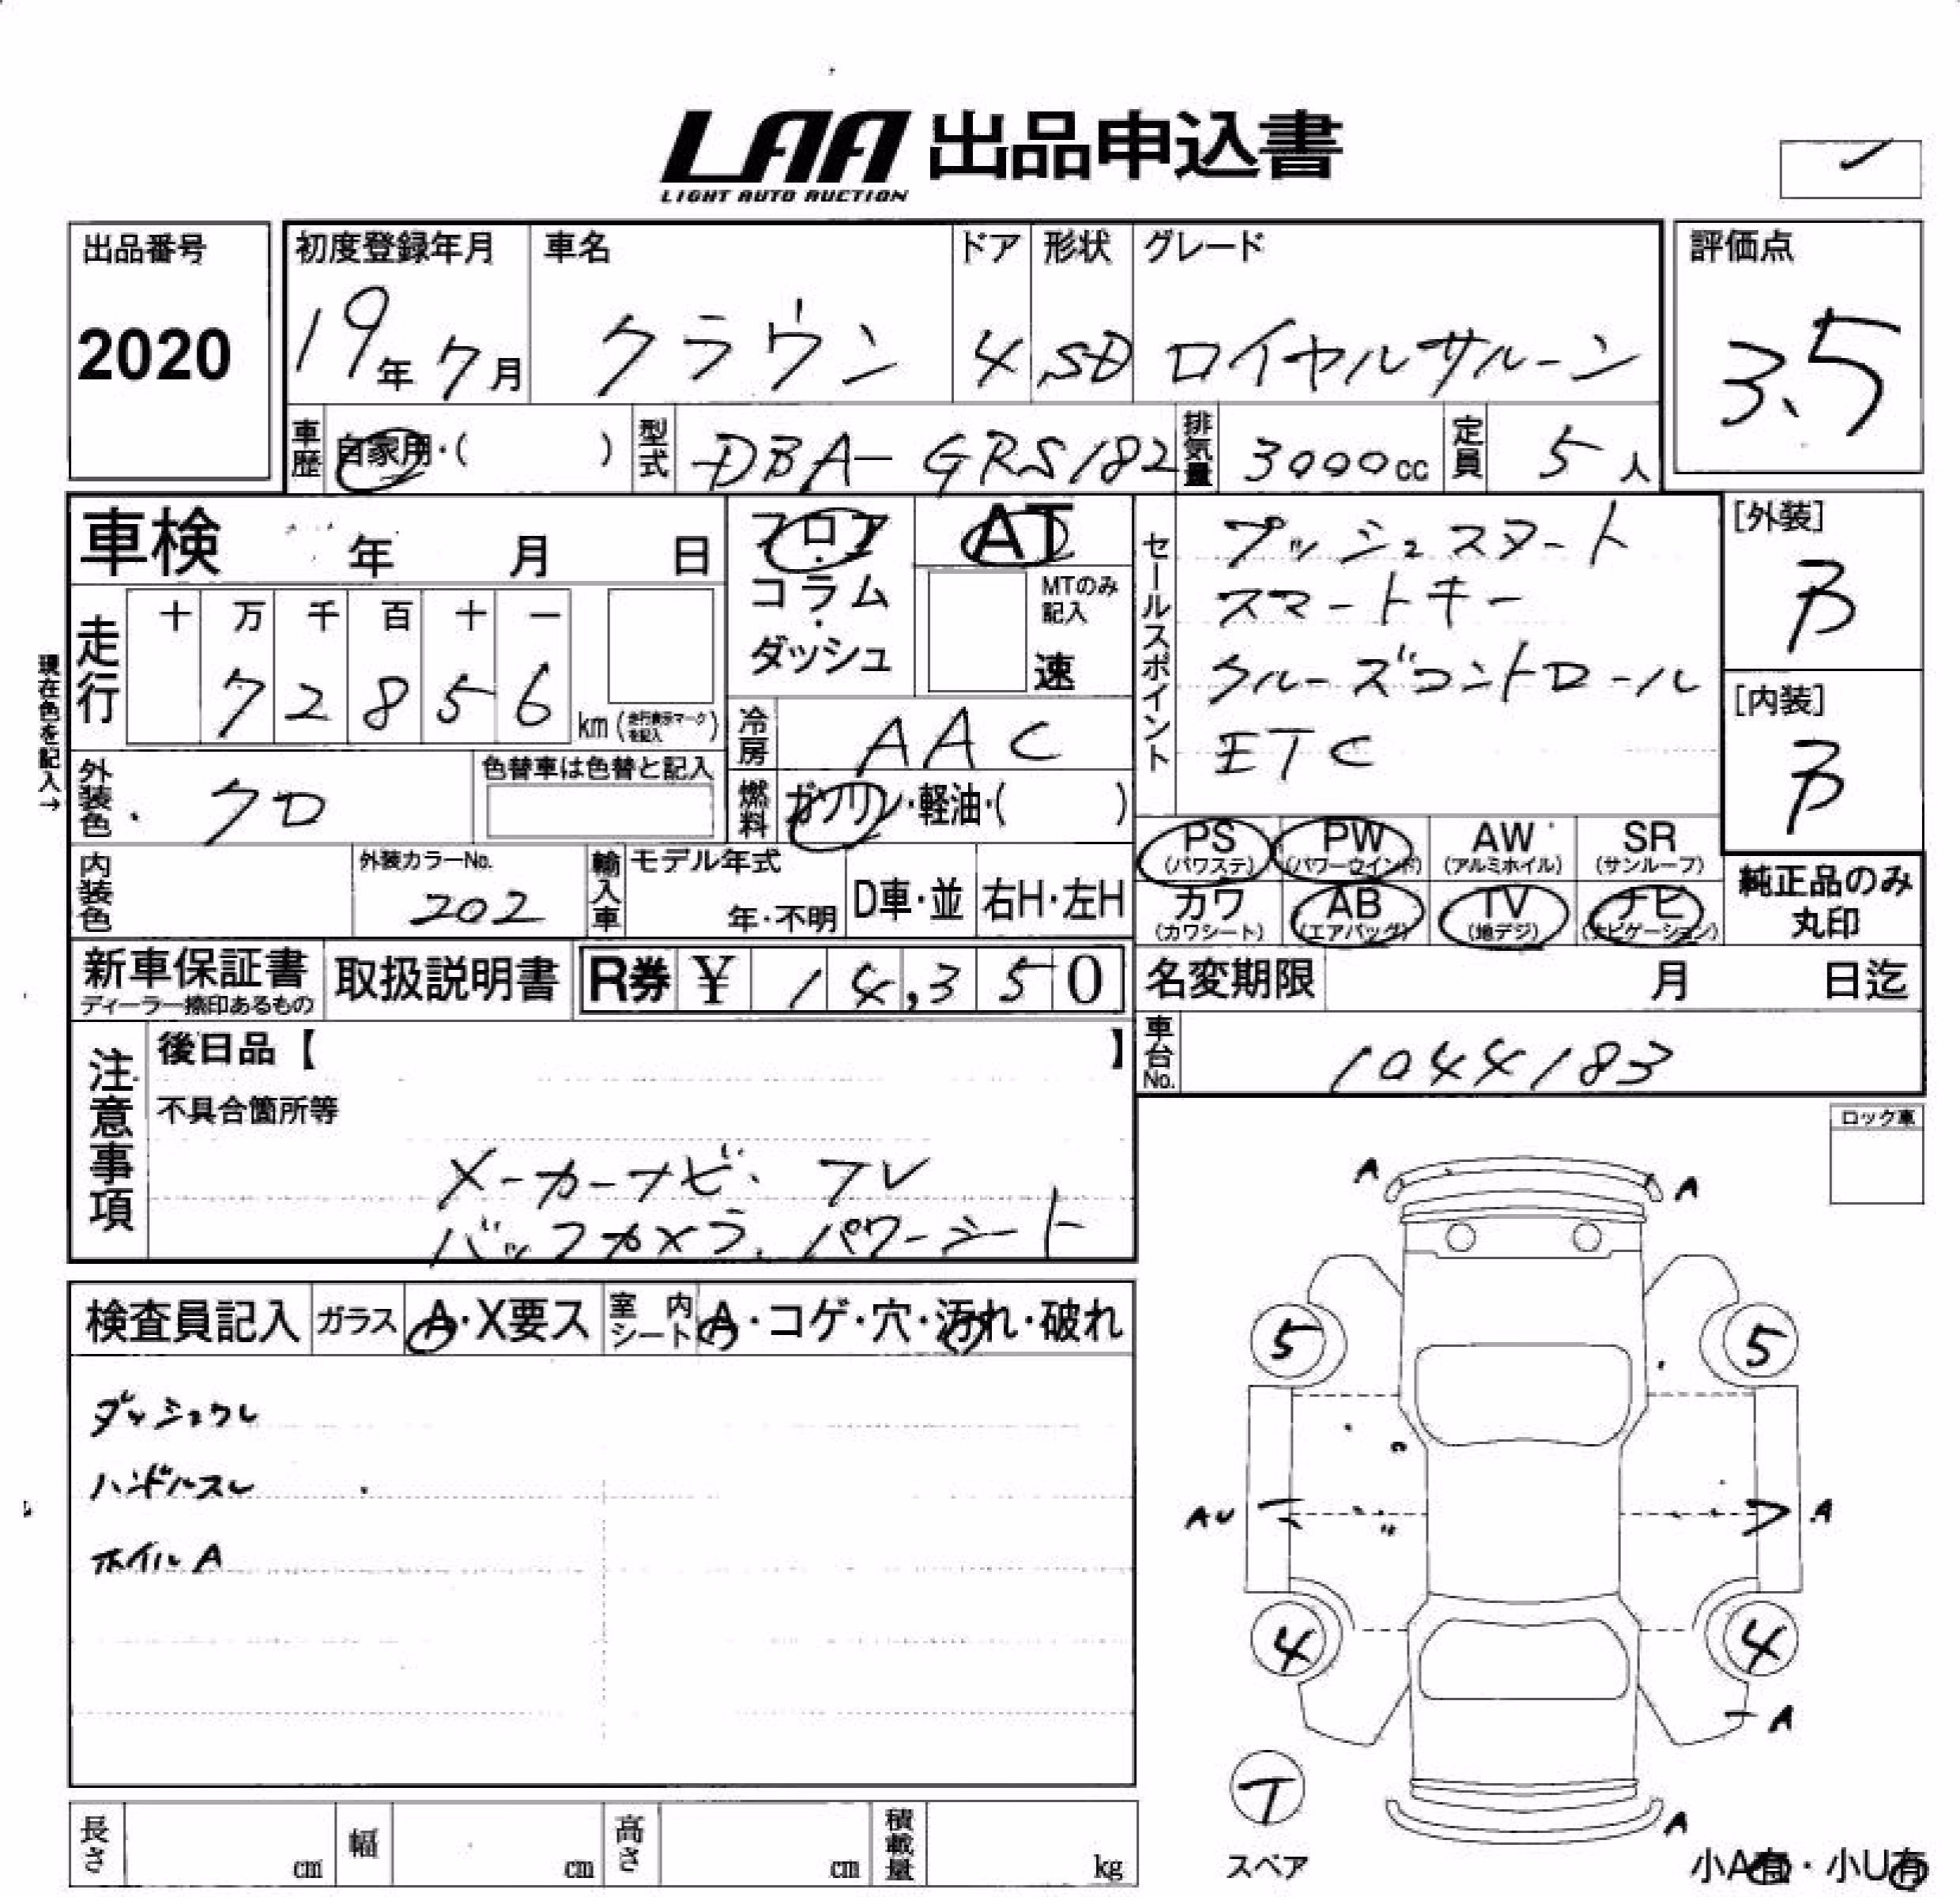 LAA 出品申込書
LIGHT AUTO AUCTION
出品番号
2020
初度登録年月
19年7月
車名
クラウン
ドア
4
形状
SD
グレード
ロイヤルサルーン
評価点
3.5
車歴
自家用・( )
型式
DBA-GRS182
排気量
3000cc
定員
5人
車検 年 月 日
フロア・コラム・ダッシュ
AT
MTのみ記入
速
セールスポイント
プッシュスタート
スマートキー
クルーズコントロール
ETC
[外装]
B
[内装]
B
現在色を記入→
走行
十 万 千 百 十 一
7 2 8 5 6 km (走行表示マークを記入)
冷房
AAC
外装色
クロ
色替車は色替と記入
燃料
ガソリン・軽油・( )
PS (パワステ) PW (パワーウインド) AW (アルミホイル) SR (サンルーフ)
カワ (カワシート) AB (エアバッグ) TV (地デジ) ナビ (ナビゲーション)
純正品のみ
丸印
内装色
外装カラーNo.
202
輸入車
モデル年式
年・不明
D車・並 右H・左H
新車保証書
ディーラー捺印あるもの
取扱説明書
R券 ¥ 14,350
名変期限 月 日迄
車台No.
1044183
注意事項
後日品【 】
不具合箇所等
メーカーナビ・フレ
バックカメラ、パワーシート
ロック車
検査員記入 ガラス A・X要ス 室内シート A・コゲ・穴・汚れ・破れ
ダッシュウレ
ハンドルスレ
ホイルA
A
A
5
5
AU
A
4
4
A
T
スペア
A
小A有・小U有
長さ cm 幅 cm 高さ cm 積載量 kg